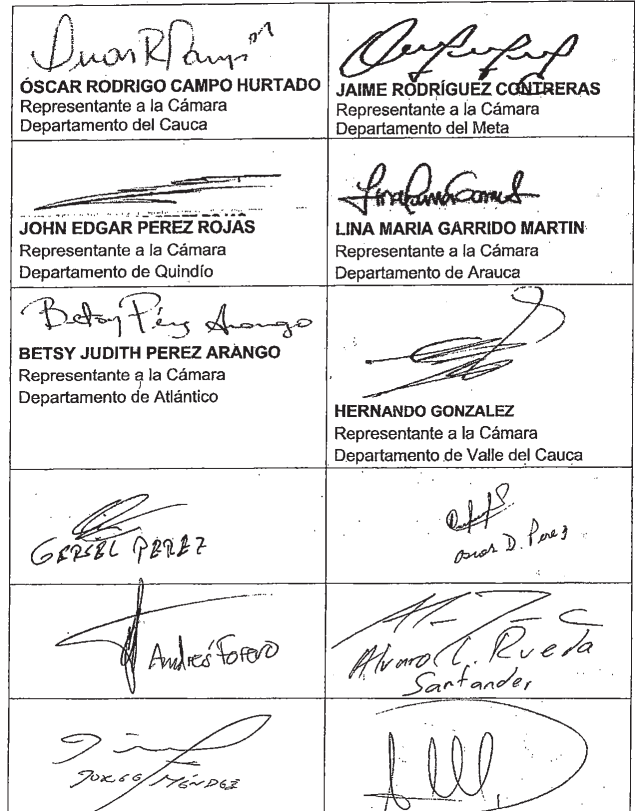 ÓSCAR RODRIGO CAMPO HURTADO
Representante a la Cámara
Departamento del Cauca
JAIME RODRÍGUEZ CONTRERAS
Representante a la Cámara
Departamento del Meta
JOHN EDGAR PEREZ ROJAS
Representante a la Cámara
Departamento de Quindío
LINA MARIA GARRIDO MARTIN
Representante a la Cámara
Departamento de Arauca
Betsy Pérez Arango
BETSY JUDITH PEREZ ARANGO
Representante a la Cámara
Departamento de Atlántico
HERNANDO GONZALEZ
Representante a la Cámara
Departamento de Valle del Cauca
GERSEL PEREZ
Oscar D. Perez
Andrés Forero
Alvaro L. Rueda
Santander
JORGE MÉNDEZ